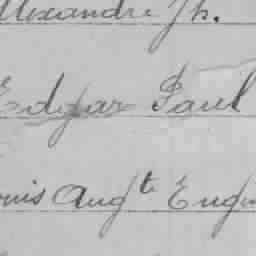 Alexandre Jh.
Edgar Paul
Louis Augt Eugè